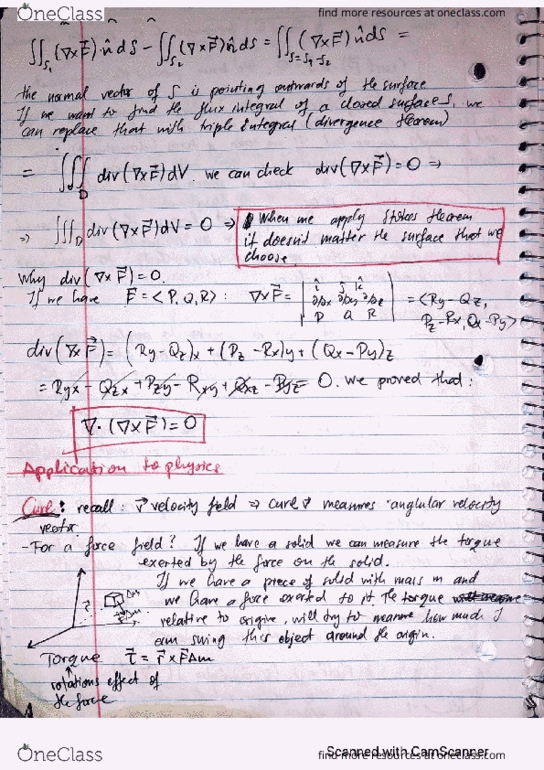 OneClass
find more resources at oneclass.com
∬_{S₁} (∇×F⃗)·n̂ dS − ∬_{S₂} (∇×F⃗) n̂ dS = ∬_{S=S₁-S₂} (∇×F⃗) n̂ dS =
the normal vector of S is pointing outwards of the surface
If we want to find the flux integral of a closed surface S, we
can replace that with triple integral (divergence theorem)
= ∭_D div(∇×F⃗) dV. we can check div(∇×F⃗) = 0 ⇒
⇒ ∭_D div(∇×F⃗) dV = 0 ⇒ When we apply Stokes theorem
it doesn't matter the surface that we
choose.
Why div(∇×F⃗) = 0.
If we have F⃗ = <P, Q, R> : ∇×F⃗ = | î ĵ k̂ ∂/∂x ∂/∂y ∂/∂z P Q R | = <Ry - Qz,
Pz - Rx, Qx - Py>
div(∇×F⃗) = (Ry - Qz)x + (Pz - Rx)y + (Qx - Py)z
= Ryx - Qzx + Pzy - Rxy + Qxz - Pyz = 0. we proved that:
∇·(∇×F⃗) = 0
Application to physics
Curl: recall: v⃗ velocity field ⇒ curl v⃗ measures angular velocity
vector
- For a force field? If we have a solid we can measure the torque
exerted by the force on the solid.
If we have a piece of solid with mass m and
we have a force exerted to it. The torque
relative to origine, will try to measure how much I
am swing this object around the origin.
?
Δm
Torque τ⃗ = r⃗ × F⃗ Δm
rotations effect of
the force
OneClass
Scanned with CamScanner
find more resources at oneclass.com